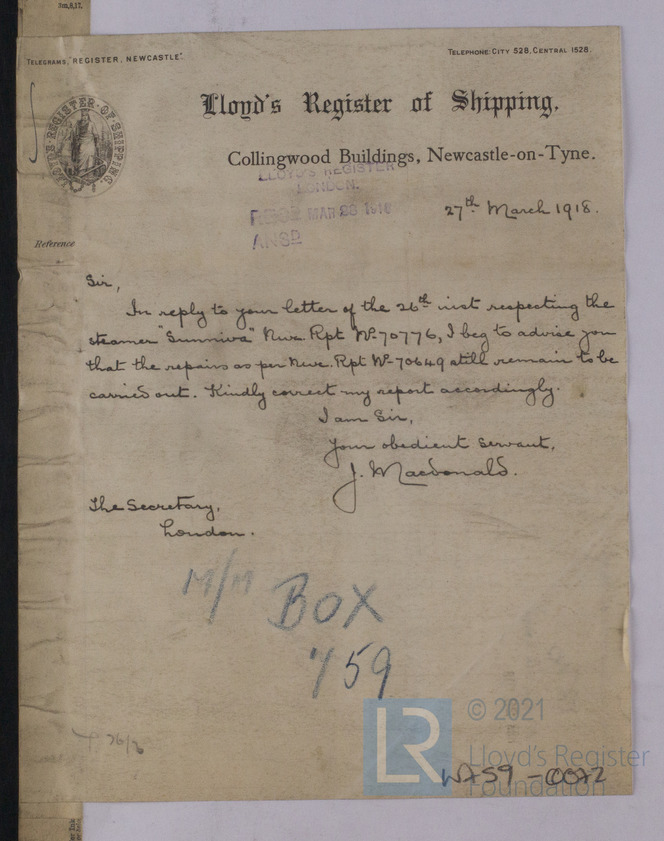 3m,8,17.
TELEGRAMS, "REGISTER, NEWCASTLE".
TELEPHONE: CITY 528, CENTRAL 1528.
LLOYD'S REGISTER OF SHIPPING.
Lloyd's Register of Shipping,
Collingwood Buildings, Newcastle-on-Tyne.
LLOYD'S REGISTER
LONDON.
MAR 28 1918
ANSD
27th March 1918.
Reference
Sir,
In reply to your letter of the 26th inst respecting the
steamer "Sunniva" Nwe. Rpt No. 70776, I beg to advise you
that the repairs as per Nwe. Rpt No. 70649 still remain to be
carried out. Kindly correct my report accordingly.
I am Sir,
Your obedient servant,
J. Macdonald.
The Secretary,
London.
M/M
BOX
759
© 2021
LR
Lloyd's Register
Foundation
WA59-0072